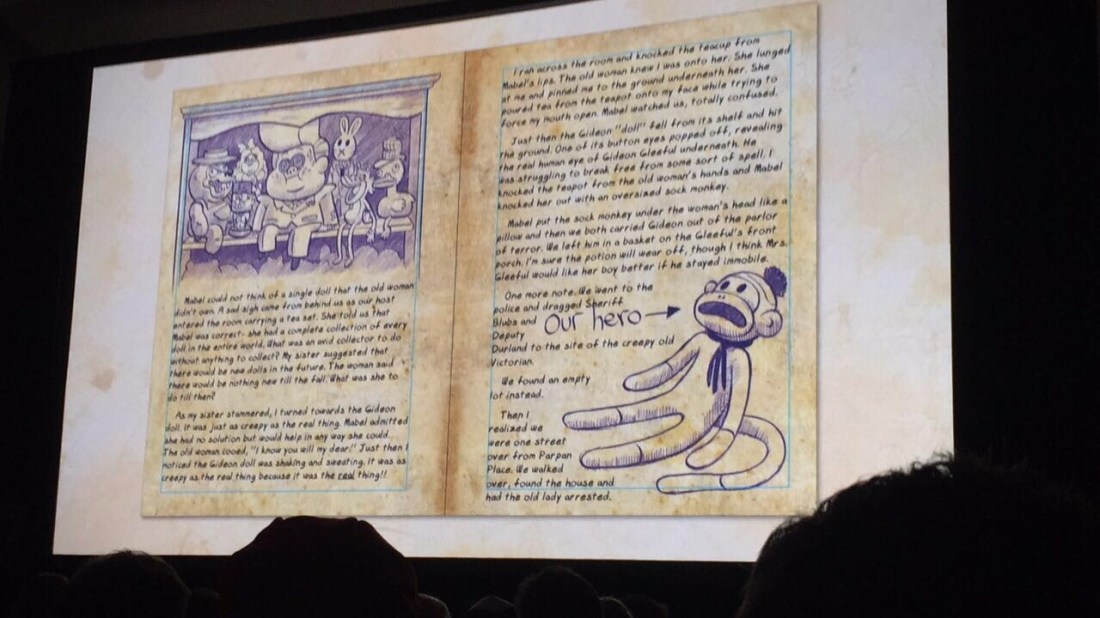 Mabel could not think of a single doll that the old woman
didn't own. A sad sigh came from behind us as our host
entered the room carrying a tea set. She told us that
Mabel was correct- she had a complete collection of every
doll in the entire world. What was an avid collector to do
without anything to collect? My sister suggested that
there would be new dolls in the future. The woman said
there would be nothing new till the fall. What was she to
do till then?
As my sister stammered, I turned towards the Gideon
doll. It was just as creepy as the real thing. Mabel admitted
she had no solution but would help in any way she could.
The old woman cooed, "I know you will my dear!" Just then I
noticed the Gideon doll was shaking and sweating. It was as
creepy as the real thing because it was the real thing!!
I ran across the room and knocked the teacup from
Mabel's lips. The old woman knew I was onto her. She lunged
at me and pinned me to the ground underneath her. She
poured tea from the teapot onto my face while trying to
force my mouth open. Mabel watched us, totally confused.
Just then the Gideon "doll" fell from its shelf and hit
the ground. One of its button eyes popped off, revealing
the real human eye of Gideon Gleeful underneath. He
was struggling to break free from some sort of spell. I
knocked the teapot from the old woman's hands and Mabel
knocked her out with an oversized sock monkey.
Mabel put the sock monkey under the woman's head like a
pillow and then we both carried Gideon out of the parlor
of terror. We left him in a basket on the Gleeful's front
porch. I'm sure the potion will wear off, though I think Mrs.
Gleeful would like her boy better if he stayed immobile.
One more note. We went to the
police and dragged Sheriff
Blubs and
Deputy
Durland to the site of the creepy old
Victorian.
Our hero
We found an empty
lot instead.
Then I
realized we
were one street
over from Parpan
Place. We walked
over, found the house and
had the old lady arrested.